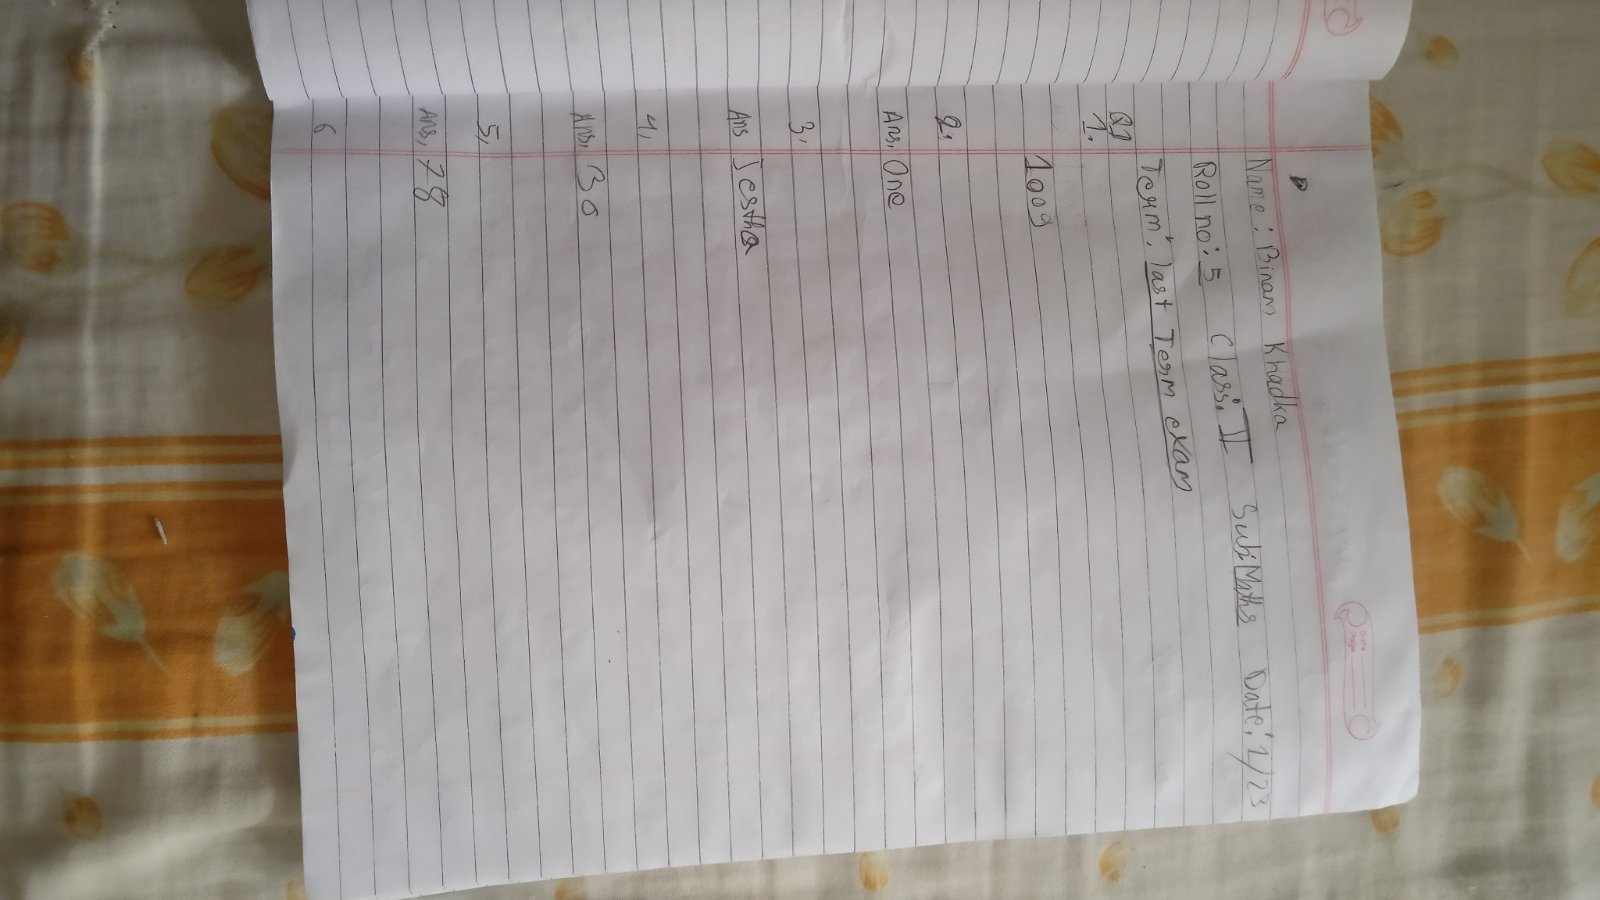 Name: Binam Khadka
Roll no: 5 Class: II Sub: Maths Date: 1/23
Term: last Term exam
Q1
1.
1009
2.
Ans. One
3.
Ans Jestha
4.
Ans. 30
5.
Ans. 78
6